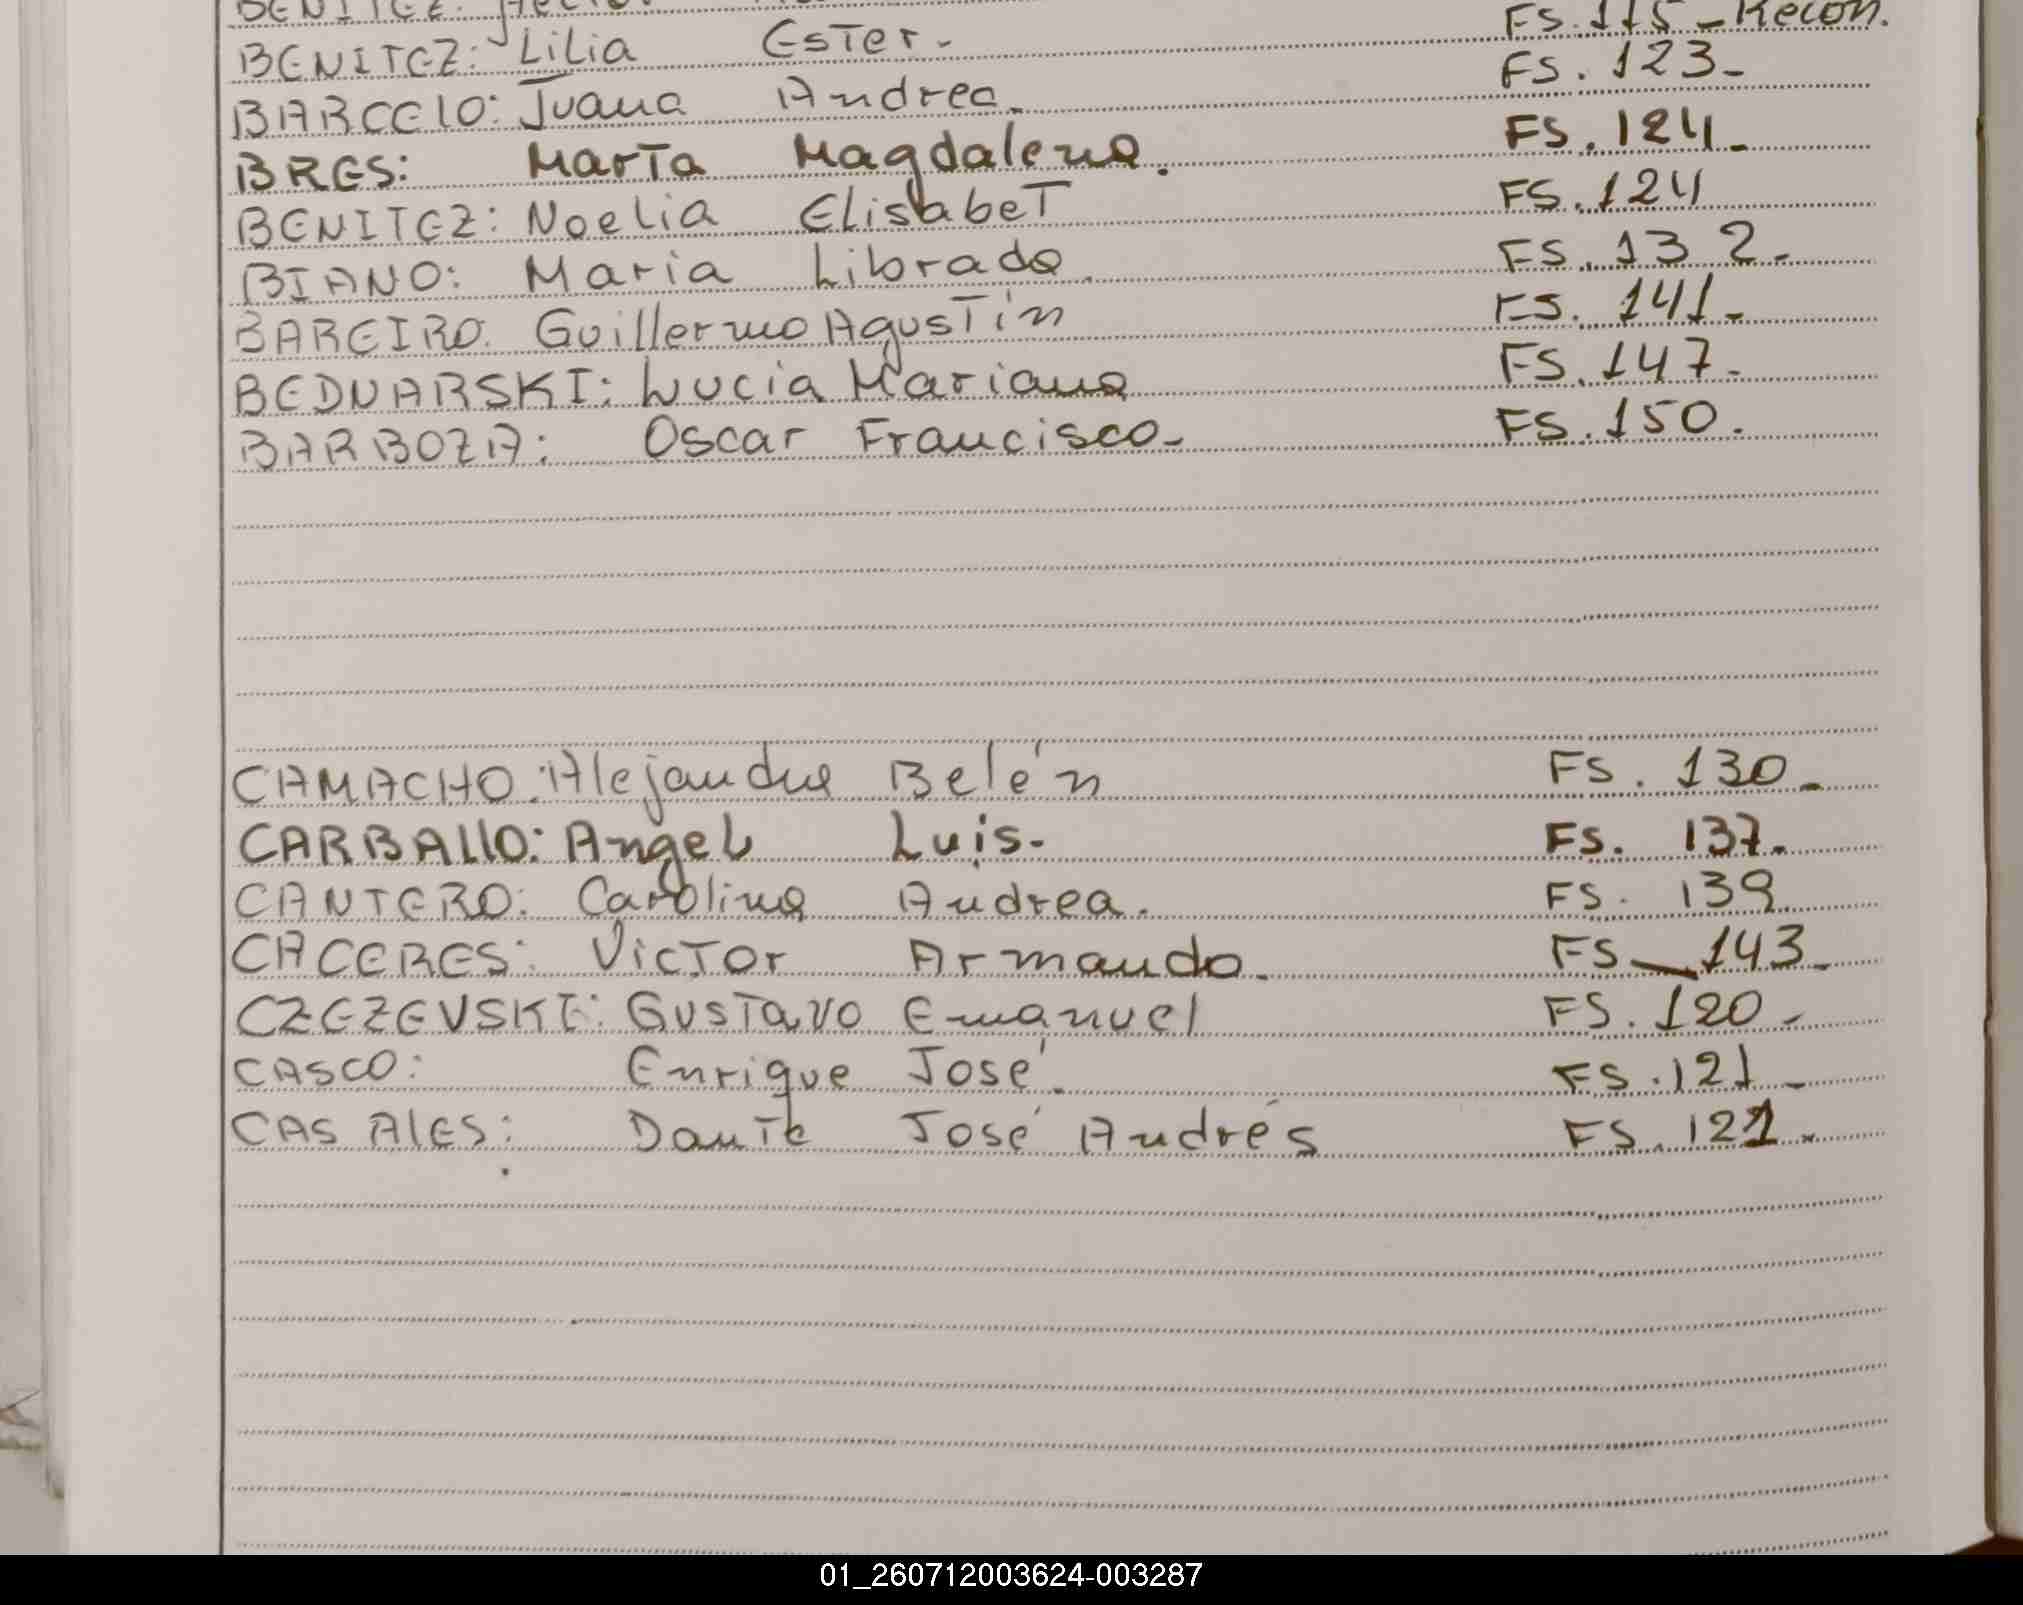 BENITEZ: FS. 115 - Recon.
BENITEZ: Lilia Ester. FS. 123-
BARCELO: Juana Andrea. FS. 124-
BRES: Marta Magdalena. FS. 124
BENITEZ: Noelia Elisabet FS. 132-
BIANO: Maria Librada. FS. 141-
BAREIRO. Guillermo Agustín FS. 147-
BEDNARSKI: Lucia Mariana FS. 150.
BARBOZA: Oscar Francisco-
CAMACHO: Alejandra Belén FS. 130-
CARBALLO: Angel Luis. FS. 137.
CANTERO: Carolina Andrea. FS. 139
CACERES: Victor Armando. FS_ 143-
CZEZEVSKI: Gustavo Emanuel FS. 120-
CASCO: Enrique José. FS. 121-
CASALES: Dante José Andrés FS. 121.
01_260712003624-003287